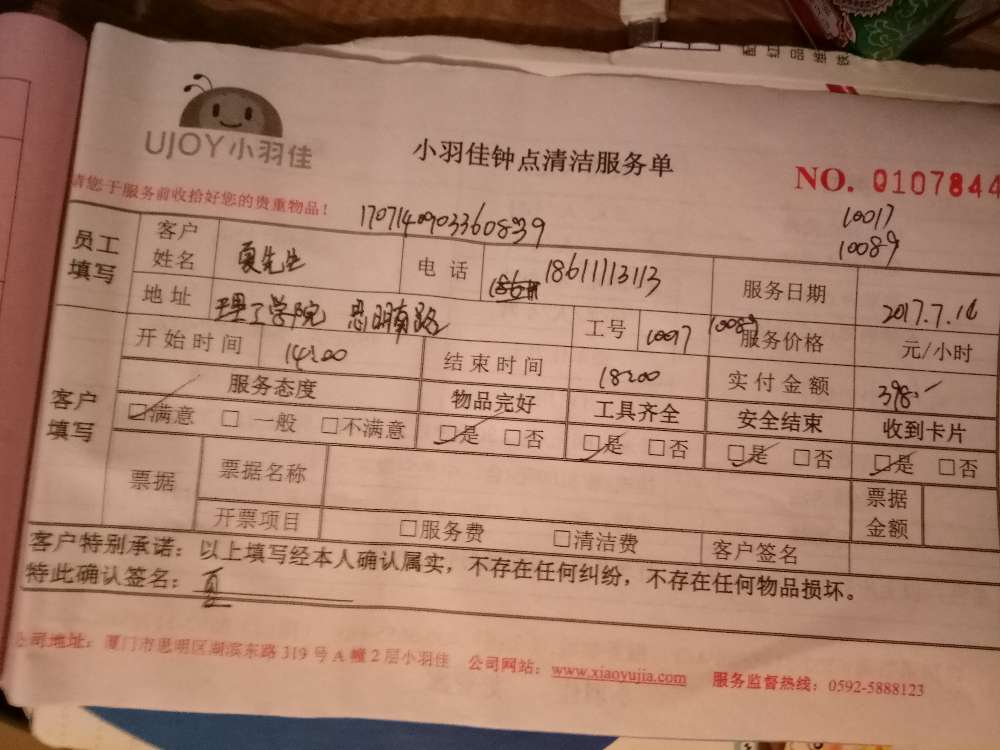 UJOY小羽佳
小羽佳钟点清洁服务单
NO. 0107844
请您于服务前收拾好您的贵重物品！
10017
1707140903360839
10089
员工填写 客户姓名 夏先生 电话 18611113113 服务日期 2017.7.16
地址 理工学院 思明南路 工号 10097 10089 服务价格 元/小时
客户填写 开始时间 14:00 结束时间 18:00 实付金额 398.-
服务态度 物品完好 工具齐全 安全结束 收到卡片
☑满意 □一般 □不满意 ☑是 □否 ☑是 □否 ☑是 □否 ☑是 □否
票据 票据名称 票据金额
开票项目 □服务费 □清洁费 客户签名
客户特别承诺：以上填写经本人确认属实，不存在任何纠纷，不存在任何物品损坏。
特此确认签名：夏
公司地址：厦门市思明区湖滨东路319号A幢2层小羽佳 公司网站：www.xiaoyujia.com 服务监督热线：0592-5888123